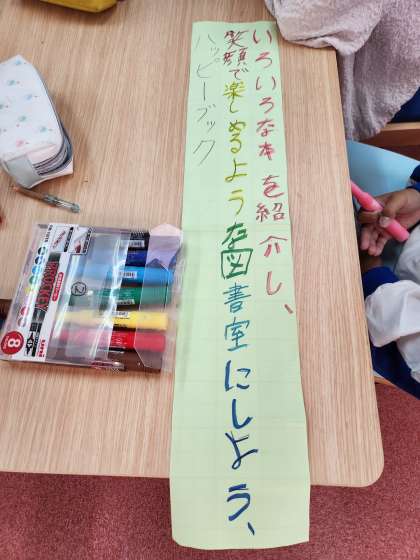 いろいろな本を紹介し、
笑顔で楽しめるような図書室にしよう、
ハッピーブック
PROCKEY
uni
8